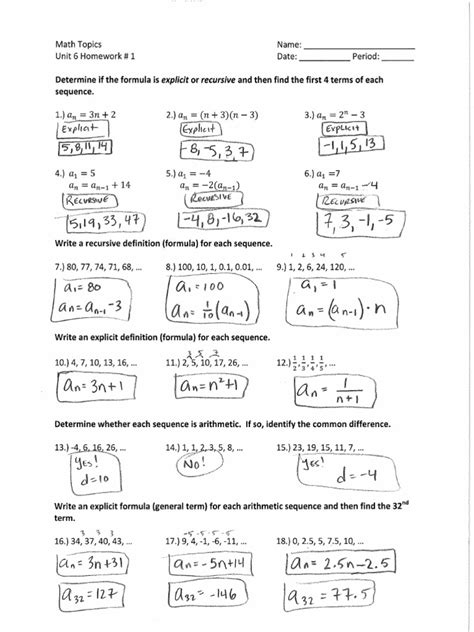 Math Topics Name: ____________________
Unit 6 Homework # 1 Date: __________ Period: ______
Determine if the formula is explicit or recursive and then find the first 4 terms of each
sequence.
1.) aₙ = 3n + 2 2.) aₙ = (n + 3)(n − 3) 3.) aₙ = 2ⁿ − 3
Explicit Explicit Explicit
5, 8, 11, 14 -8, -5, 3, 7 -1, 1, 5, 13
4.) a₁ = 5 5.) a₁ = −4 6.) a₁ =7
aₙ = aₙ₋₁ + 14 aₙ = −2(aₙ₋₁) aₙ = aₙ₋₁ −4
Recursive Recursive Recursive
5, 19, 33, 47 -4, 8, -16, 32 7, 3, -1, -5
Write a recursive definition (formula) for each sequence.
1 2 3 4 5
7.) 80, 77, 74, 71, 68, ... 8.) 100, 10, 1, 0.1, 0.01, ... 9.) 1, 2, 6, 24, 120, ...
a₁ = 80 a₁ = 100 a₁ = 1
aₙ = aₙ₋₁ -3 aₙ = 1/10 (aₙ₋₁) aₙ = (aₙ₋₁) · n
Write an explicit definition (formula) for each sequence.
3 5 7
10.) 4, 7, 10, 13, 16, ... 11.) 2, 5, 10, 17, 26, ... 12.) 1/2, 1/3, 1/4, 1/5, ...
aₙ = 3n+1 aₙ = n²+1 aₙ = 1/n+1
Determine whether each sequence is arithmetic. If so, identify the common difference.
13.) -4, 6, 16, 26, ... 14.) 1, 1, 2, 3, 5, 8, ... 15.) 23, 19, 15, 11, 7, ...
Yes! No! Yes!
d=10 d= -4
Write an explicit formula (general term) for each arithmetic sequence and then find the 32ⁿᵈ
term.
3 3 3 -5 -5 -5 -5
16.) 34, 37, 40, 43, ... 17.) 9, 4, -1, -6, -11, ... 18.) 0, 2.5, 5, 7.5, 10, ...
aₙ = 3n+31 aₙ = -5n+14 aₙ = 2.5n-2.5
a₃₂ = 127 a₃₂ = -146 a₃₂ = 77.5